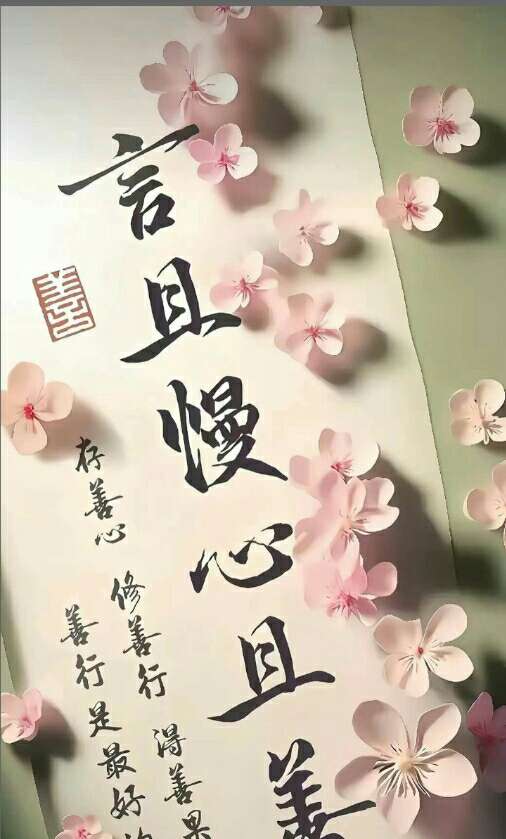 言且慢心且善
存善心 修善行 得善果
善行是最好